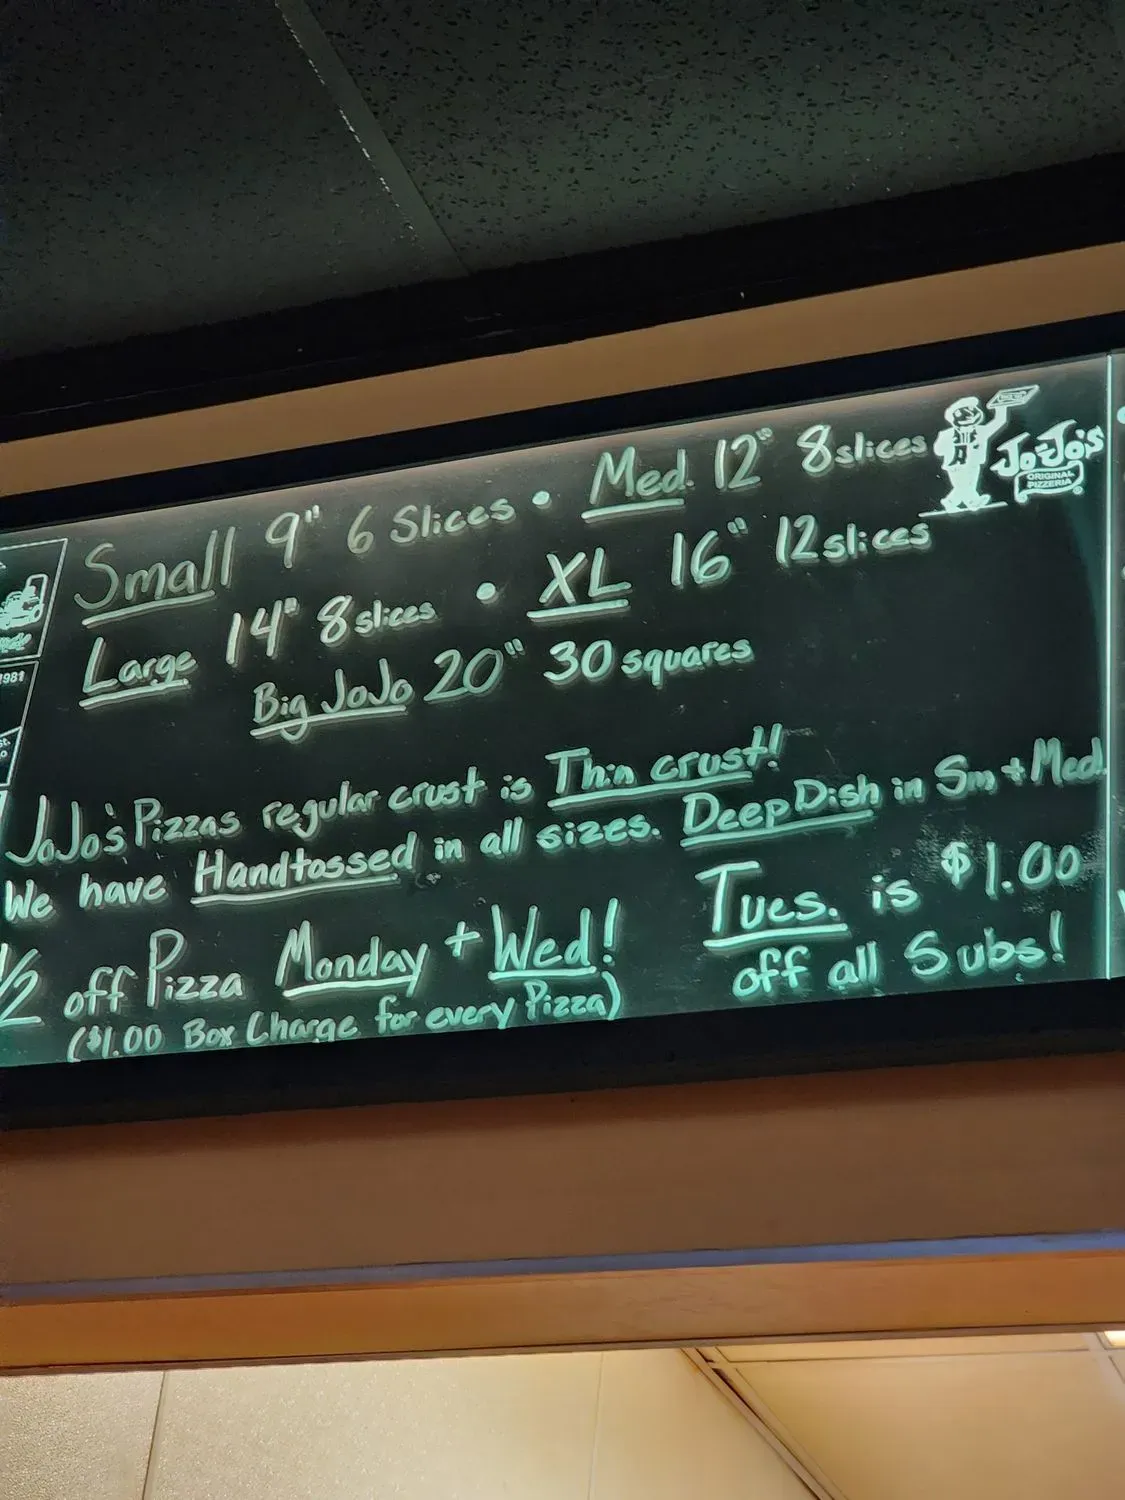 Small 9" 6 Slices • Med. 12" 8 slices
Large 14" 8 slices • XL 16" 12 slices
Big JoJo 20" 30 squares
Jo-Jo's
ORIGINAL
PIZZERIA
1981
JoJo's Pizzas regular crust is Thin crust!
We have Handtossed in all sizes. Deep Dish in Sm + Med.
1/2 off Pizza Monday + Wed!
($1.00 Box Charge for every Pizza)
Tues. is $1.00
off all Subs!